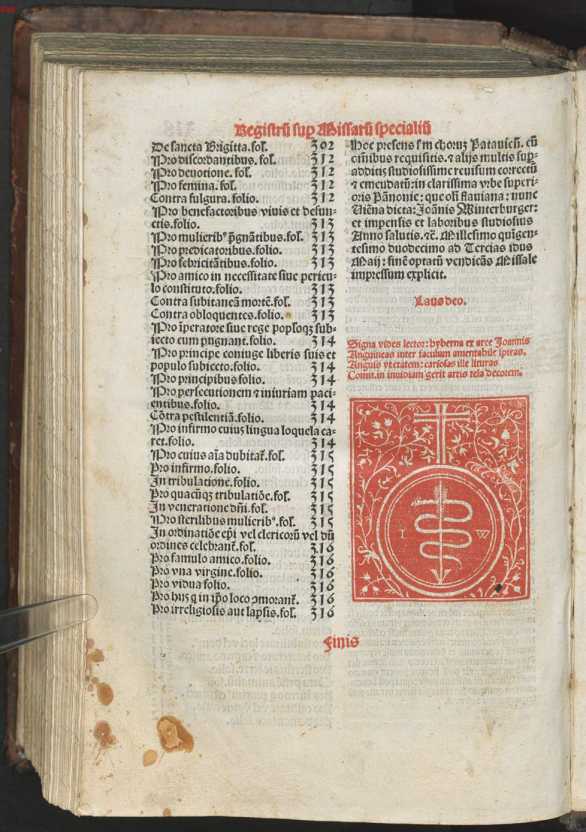 Registrū sup Missarū specialiū
De sancta Brigitta.fol. 302
Pro discordantibus. fol. 312
Pro deuotione. fol. 312
Pro femina. fol. 312
Contra fulgura. folio. 312
Pro benefactoribus viuis et defun-
ctis.folio. 313
Pro mulieribꝰ p̄gnātibus.fol. 313
Pro predicatoribus.folio. 313
Pro febricitātibus.folio. 313
Pro amico in necessitate siue pericu-
lo constituto.folio. 313
Contra subitaneā mortē.fol. 313
Contra obloquentes.folio. 313
Pro īperatore siue rege pop̄loqꝫ sub-
iecto cum pugnant.folio. 314
Pro principe coniuge liberis suis et
populo subiecto.folio. 314
Pro principibus folio. 314
Pro persecutionem ⁊ iniuriam paci-
entibus.folio. 314
Cōtra pestilentiā.folio. 314
Pro infirmo cuius lingua loquela ca-
ret.folio. 314
Pro cuius aīa dubitat̄.fol. 315
Pro infirmo.folio. 315
In tribulatione.folio. 315
Pro quacūqꝫ tribulatiōe.fol. 315
In veneratione dn̄i.fol. 315
Pro sterilibus mulieribꝰ.fol. 315
In ordinatiōe ep̄i vel clericorū vel dū
ordines celebrant̄.fol. 316
Pro famulo amico.folio. 316
Pro vna virgine.folio. 316
Pro vidua folio. 316
Pro hijs q in ip̄o loco ꝯmorant̄. 316
Pro irreligiosis aut lapsis.fol. 316
Hoc presens s̄m chorum Patauien̄. cū
oīnibus requisitis. ⁊ alijs multis sup-
additis studiosissime reuisum correctū
⁊ emendatū: in clarissima vrbe superi-
oris Pānonie: que olī flauiana: nunc
Uiēna dicta: Joānis Winterburger:
et impensis et laboribus studiosius
Anno salutis. ⁊c̄. Millesimo quigen-
tesimo duodecimo ad Tercias idus
Maij: finē optatū vendicās Missale
impressum explicit.
Laus deo.
Signa vides lector: hyberna ex arce Joannis
Anguineas inter iaculum amentabile spiras.
Anguis vt etatem: cariosas ille lituras
Comit. in inuidiam gerit artis tela decorem.
I W
Finis